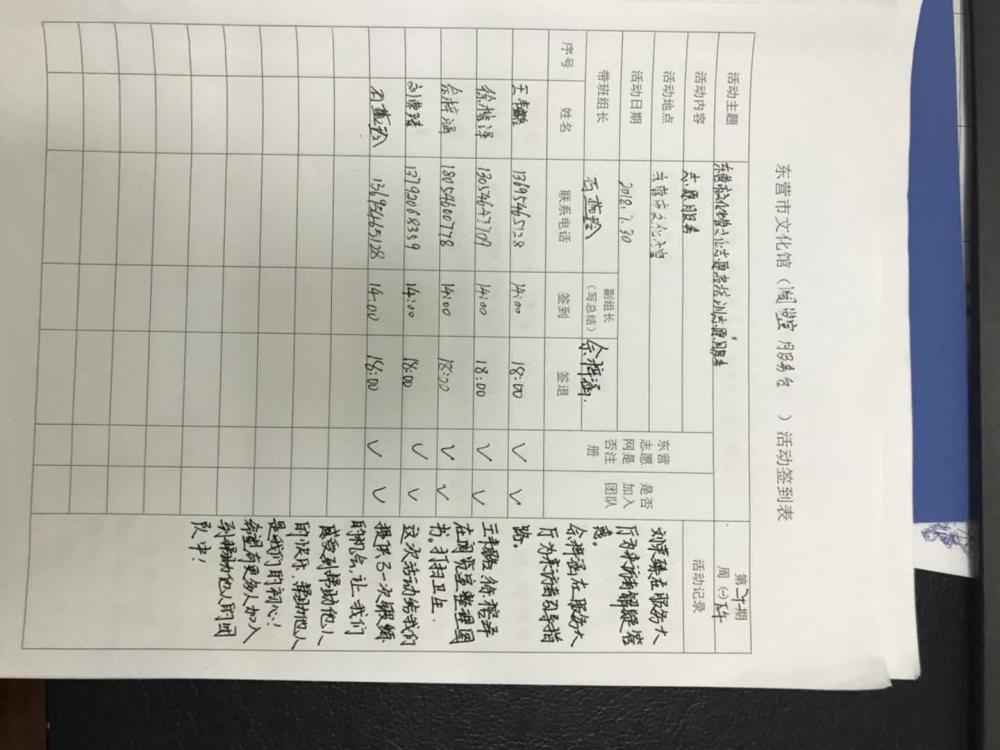 东营市文化馆（阅览室、服务台 ）活动签到表
活动主题 东营市文化馆文化志愿者培训志愿服务
第 期
周(一)下午
活动内容 志愿服务
活动记录
活动地点 东营市文化馆
活动日期 2018.7.30
带班组长 石燕玲 副组长（写总结） 余梓涵
东营志愿网是否注册
是否加入团队
序号 姓名 联系电话 签到 签退
王 13695465128 14:00 18:00 ✓ ✓
徐 泽 13054647709 14:00 18:00 ✓ ✓
余梓涵 18054600778 14:00 18:00 ✓ ✓
刘 13792068339 14:00 18:00 ✓ ✓
石燕玲 13695465128 14:00 18:00 ✓ ✓
刘 在服务大
厅为来访者解疑答
惑。
余梓涵在服务大
厅为来访者引导指
路。
王 徐 泽
在阅览室整理图
书。打扫卫生。
这次活动给我们
提供了一次锻炼
的机会,让我们
感受到帮助他人
的快乐,帮助他人
是我们的初心！
希望有更多人加入
到帮助他人的团
队中！